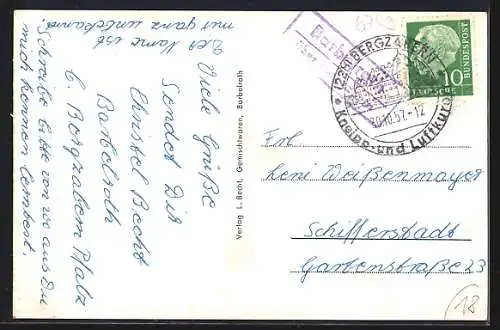 Der Name ist
mir ganz unbekannt
Viele Grüße
Sendet Dir
Christel Becht
Barbelroth
b. Bergzabern Pfalz
Schreibe bitte von wo aus Du
mich kennen
Verlag L. Becht, Gemischtwaren, Barbelroth
6749
(22b) BERGZABERN
30.10.57.-12
Kneipp- und Luftkurort
DEUTSCHE BUNDESPOST
10
Frl.
Leni Weißenmayer
Schifferstadt
Gartenstraße 23
18